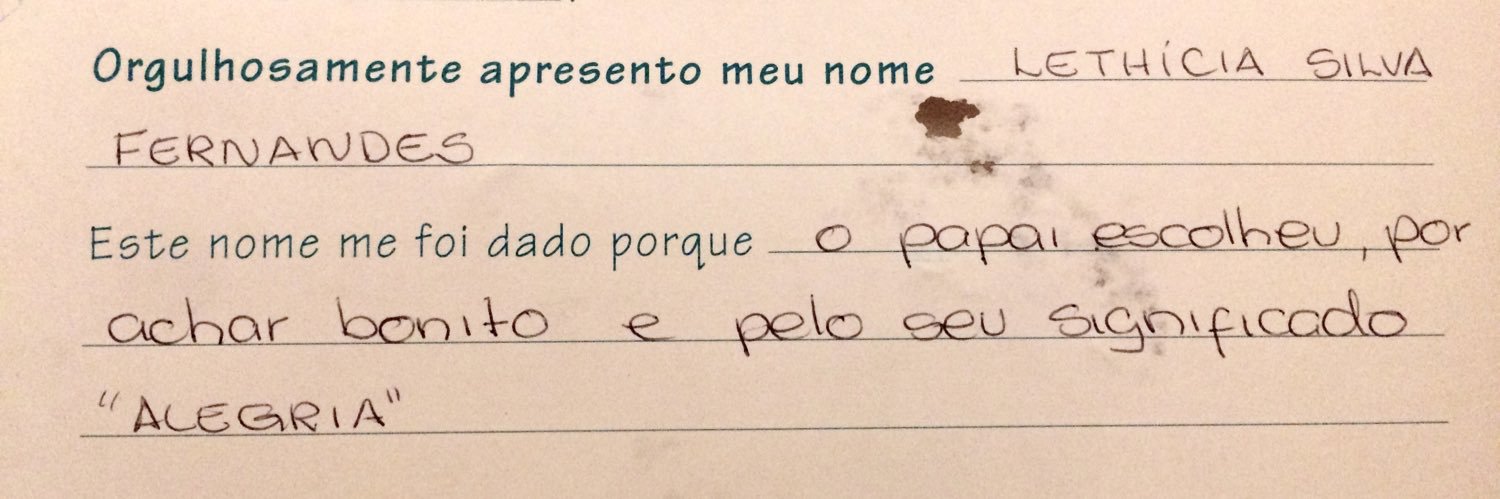 Orgulhosamente apresento meu nome LETHÍCIA SILVA
FERNANDES
Este nome me foi dado porque o papai escolheu, por
achar bonito e pelo seu significado
"ALEGRIA"